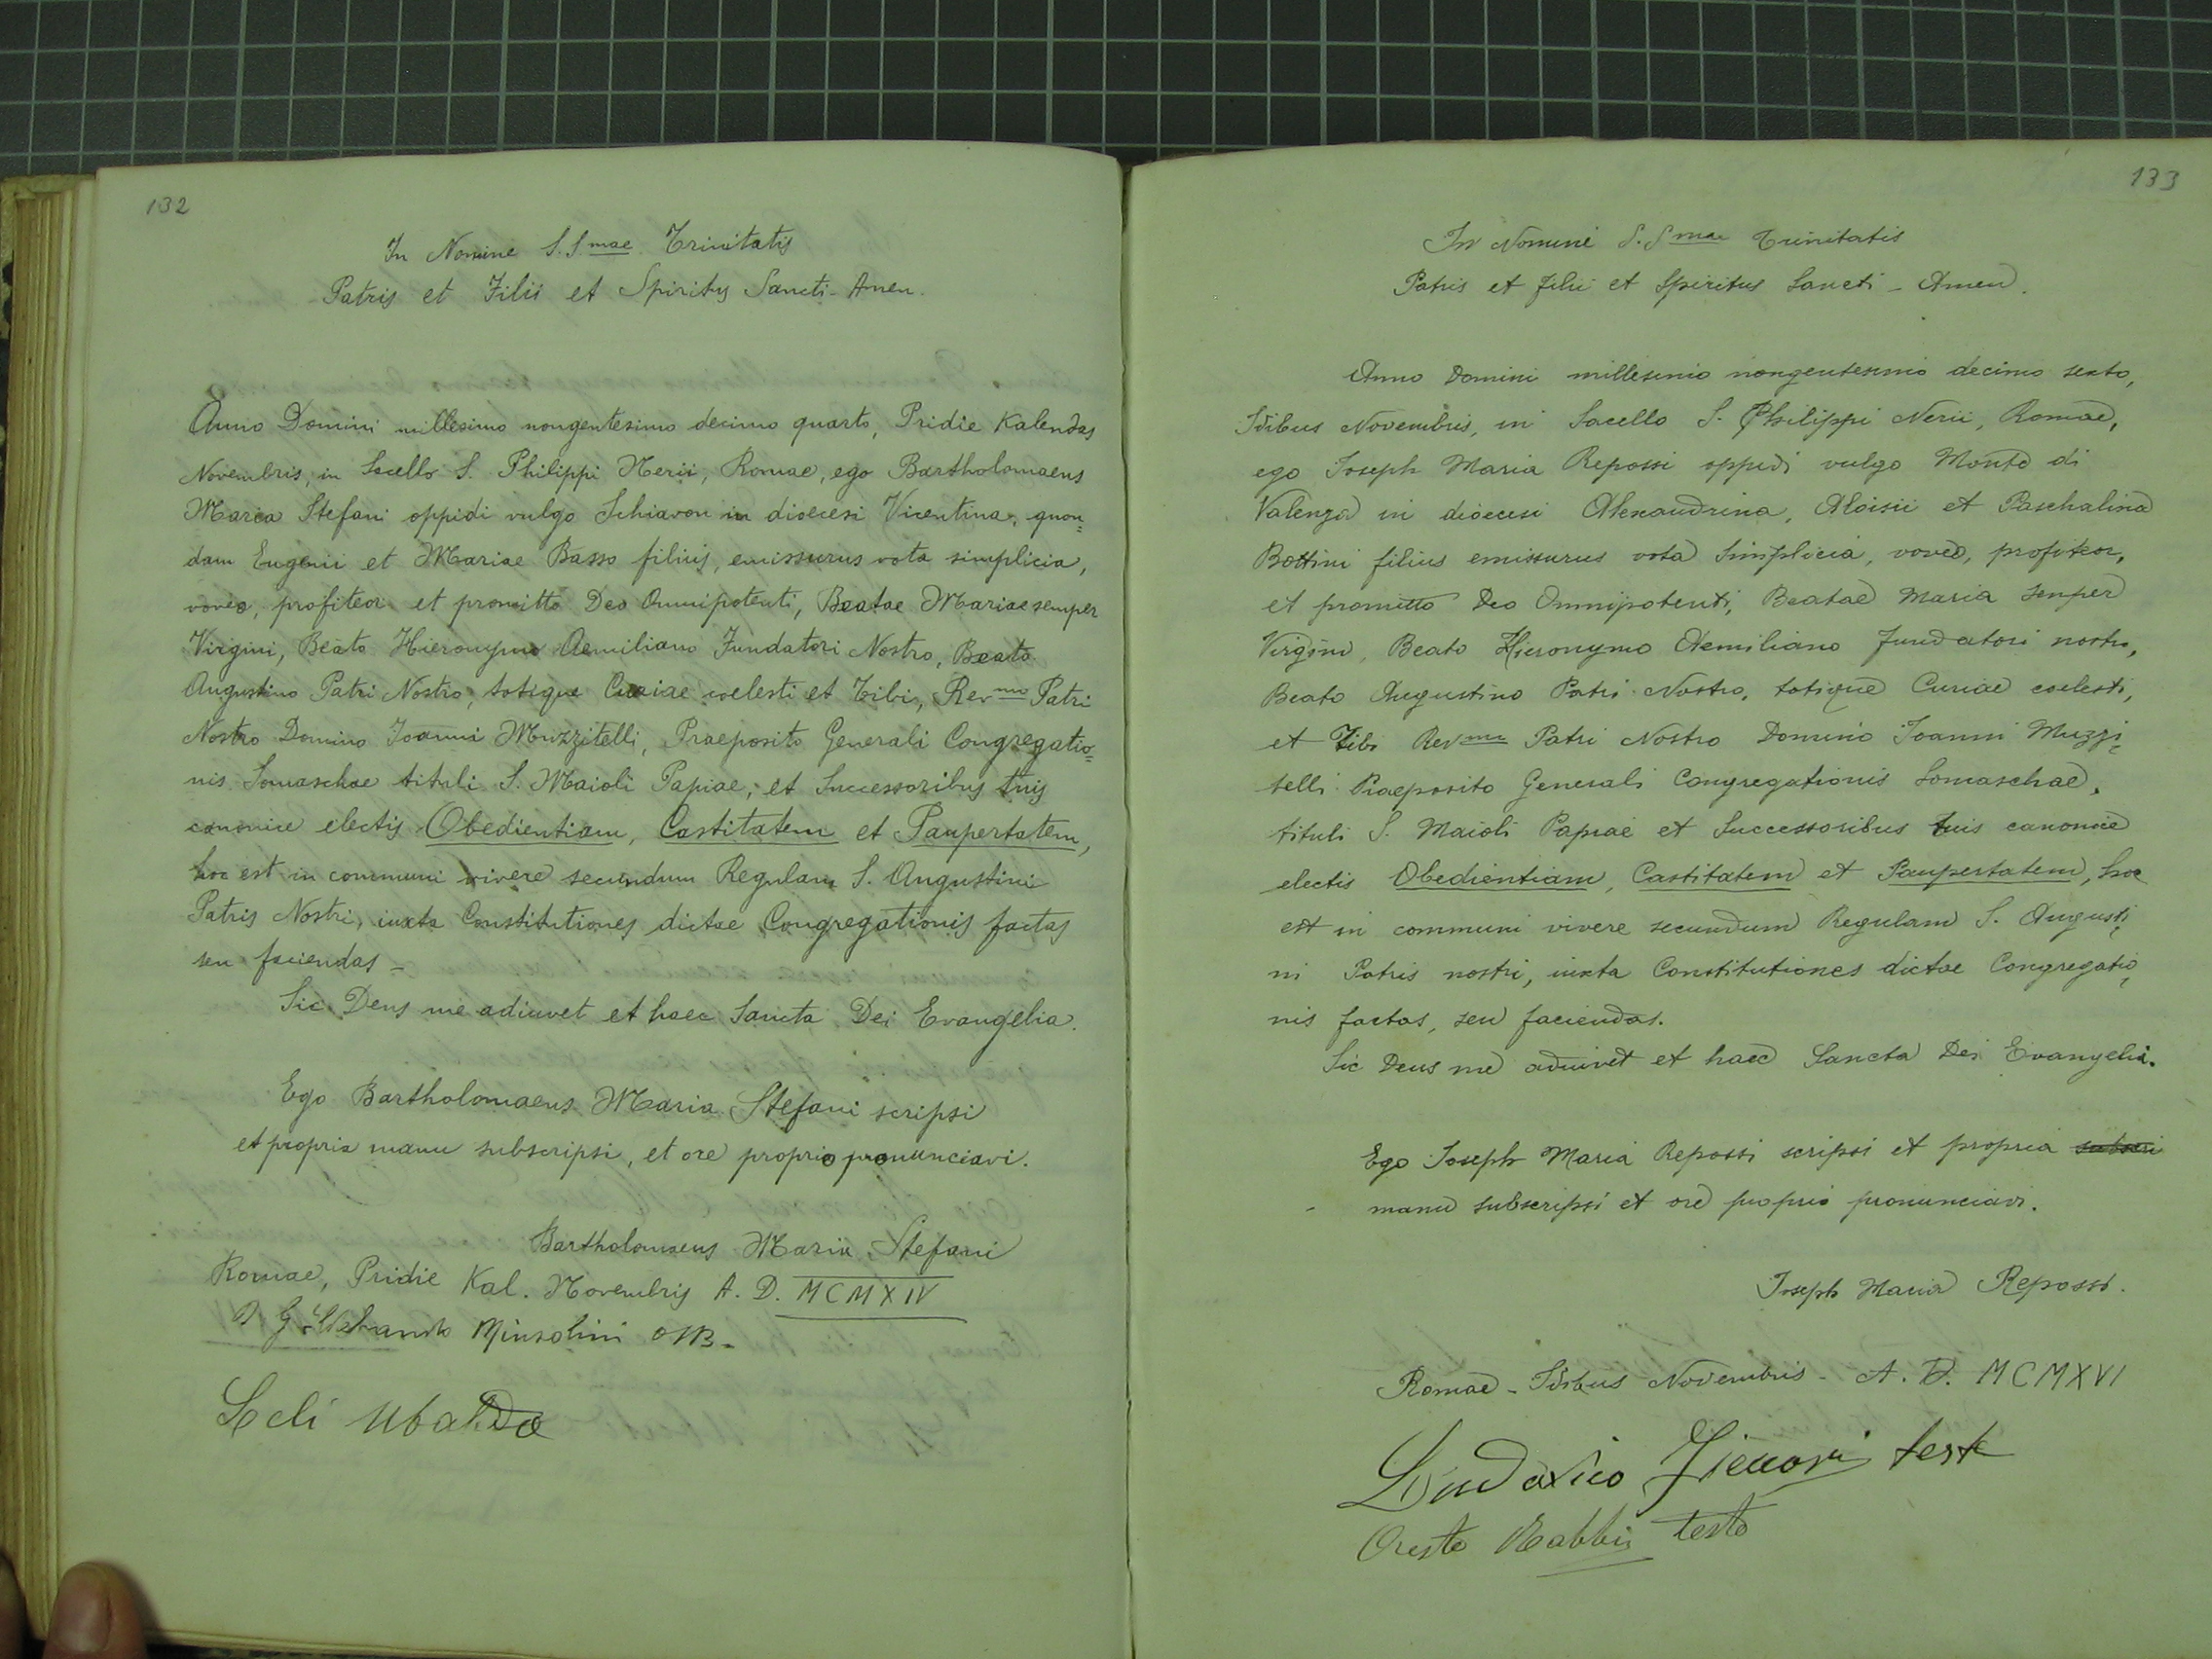 132
In Nomine S.S.mae Trinitatis
Patris et Filii et Spiritus Sancti - Amen.
Anno Domini millesimo nongentesimo decimo quarto, Pridie Kalendas
Novembris, in Sacello S. Philippi Nerii, Romae, ego Bartholomaeus
Maria Stefani oppidi vulgo Schiavon in dioecesi Vicentina, quon=
dam Eugenii et Mariae Basso filius, emissurus vota simplicia,
voveo, profiteor et promitto Deo Omnipotenti, Beatae Mariae semper
Virgini, Beato Hieronymo Aemiliano Fundatori Nostro, Beato
Augustino Patri Nostro, totique Curiae coelesti et Tibi, Rev.mo Patri
Nostro Domino Joanni Muzzitelli, Praeposito Generali Congregatio=
nis Somaschae tituli S. Maioli Papiae, et Successoribus tuis
canonice electis Obedientiam, Castitatem et Paupertatem,
hoc est in communi vivere secundum Regulam S. Augustini
Patris Nostri, iuxta Constitutiones dictae Congregationis factas
seu faciendas -
Sic Deus me adiuvet et haec Sancta Dei Evangelia.
Ego Bartholomaeus Maria Stefani scripsi
et propria manu subscripsi, et ore proprio pronunciavi.
Bartholomaeus Maria Stefani
Romae, Pridie Kal. Novembris A. D. MCMXIV
Minsolini
Leli Ubaldo
133
In Nomine S.Smae Trinitatis
Patris et Filii et Spiritus Sancti - Amen.
Anno Domini millesimo nongentesimo decimo sexto,
Idibus Novembris, in Sacello S. Philippi Nerii, Romae,
ego Joseph Maria Repossi oppidi vulgo Monte di
Valenza in dioecesi Alexandrina, Aloisii et Paschalina
Bottini filius emissurus vota simplicia, voveo, profiteor,
et promitto Deo Omnipotenti, Beatae Maria semper
Virgini, Beato Hieronymo Aemiliano Fundatori nostro,
Beato Augustino Patri Nostro, totique Curiae coelesti,
et Tibi Rev.mo Patri Nostro Domino Joanni Muzzi=
telli Praeposito Generali Congregationis Somaschae,
tituli S. Maioli Papiae et Successoribus tuis canonice
electis Obedientiam, Castitatem et Paupertatem, hoc
est in communi vivere secundum Regulam S. Augusti=
ni Patris nostri, iuxta Constitutiones dictae Congregatio=
nis factas, seu faciendas.
Sic Deus me adiuvet et haec Sancta Dei Evangelia.
Ego Joseph Maria Repossi scripsi et propria subscri
manu subscripsi et ore proprio pronunciavi.
Joseph Maria Repossi.
Romae - Idibus Novembris - A. D. MCMXVI
Ludovico teste
Oreste Rabbii teste